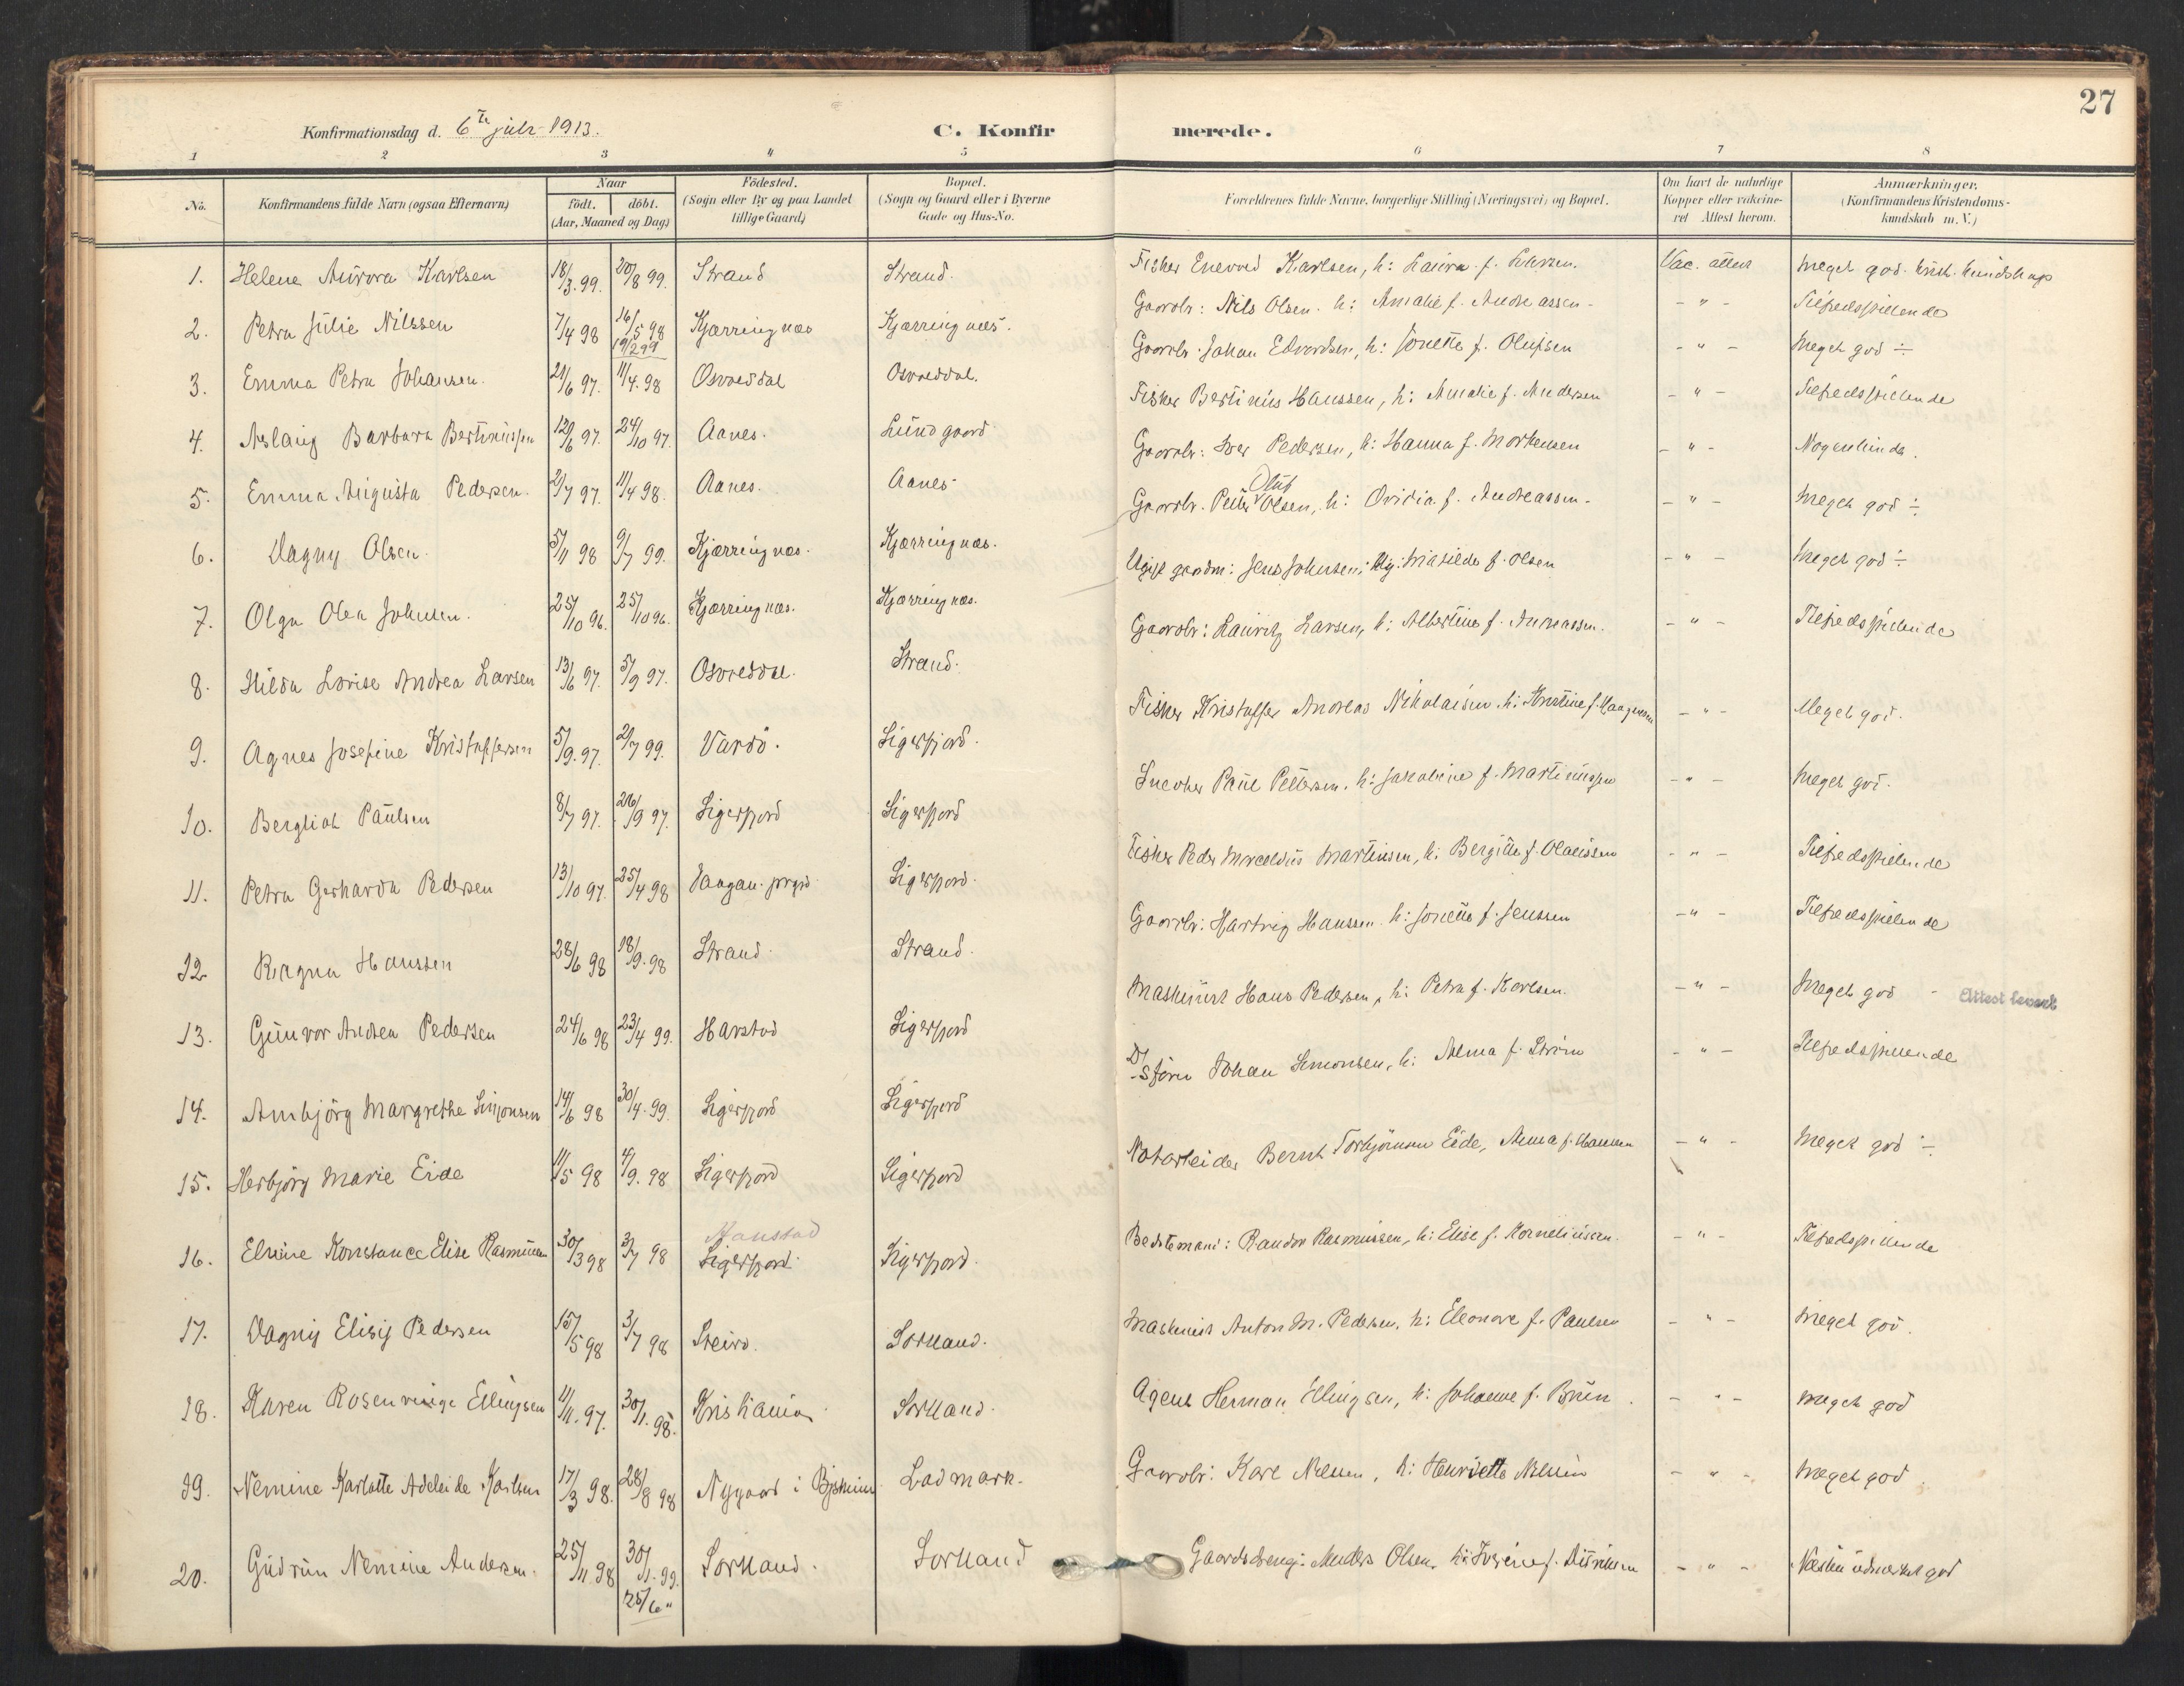 27
Konfirmationsdag d. 6te juli 1913.
C. Konfirmerede.
1 2 3 4 5 6 7 8
No. Konfirmandens fulde Navn (ogsaa Efternavn) Naar födt. döbt. (Aar, Maaned og Dag) Födested. (Sogn eller By og paa Landet tillige Gaard) Bopæl. (Sogn og Gaard eller i Byerne Gade og Hus-No. Forældrenes fulde Navne, borgerlige Stilling (Næringsvei) og Bopæl. Om havt de naturlige Kopper eller vakcineret Attest herom. Anmærkninger. (Konfirmandens Kristendomskundskab m. V.)
1. Helene Aurora Karlsen 18/3.99. 20/8 99. Strand Strand. Fisker Enevold Karlsen, h: Laura f. Larsen. Vac. attest Meget god. krist. kundskap
2. Petra Julie Nilssen 7/4 98 16/5 98 19/2 99 Kjærringnæs Kjærringnæs. Gaardbr: Nils Olsen. h: Amalie f. Andreassen - - " - Tilfredsstillende
3. Emma Petra Johansen. 21/6 97. 11/4.98 Osvolddal Osvolddal. Gaardbr. Johan Edvardsen, h: Jonette f. Olufsen - " - Meget god ÷
4. Aslaug Barbara Bertinussen 12/6 97. 24/10 97. Aanes. Lundgaard Fisker Bertinus Hanssen, h: Amalie f. Andersen - " - Tilfredsstillende
5. Emma Augusta Pedersen. 2/7 97. 11/4 98. Aanes. Aanes Gaardbr: Iver Pedersen, h: Hanna f. Mortensen - " - Nogenlunde.
6. Dagny Olsen. 5/11 98 9/7 99. Kjærringnæs. Kjærringnæs. Gaardbr. Peter Oluf Olsen, h: Ovidia f. Andreassen - - " - Meget god ÷
7. Olga Olea Johnsen. 25/10 96. 25/10 96. Kjærringnæs. Kjærringnæs. Ugift gaardm: Jens Johnsen; Ug: Matilde f. Olsen - " - Meget god ÷
8. Hilda Lovise Andrea Larsen 13/6 97. 5/9 97. Osvolddal. Strand. Gaardbr: Lauritz Larsen, h: Albertine f. Andreassen. - " - Tilfredsstillende
9. Agnes Josefine Kristoffersen 5/9.97. 2/7 99. Vardö. Sigerfjord. Fisker Kristoffer Andreas Nikolaisen h: Kristine f. Haagensen - " - Meget god.
10. Bergliot Paulsen 8/7 97. 26/9 97. Sigerfjord Sigerfjord Snedker Paul Pettersen. h: Jakobine f. Martinussen - " - Meget god.
11. Petra Gerharda Pedersen 13/10 97. 25/4 98 Vaagan. prgjd Sigerfjord. Fisker Peder Marcelius Martinsen, h: Bergitte f. Olaussen - " - Tilfredsstillende
12. Ragna Hanssen 28/6 98 18/9.98 Strand. Strand. Gaardbr: Hartvig Hanssen h: Jonette f. Jenssen - " - Tilfredsstillende
13. Gunvor Andrea Pedersen 24/6 98 23/4 99. Harstad Sigerfjord Maskinist Hans Pedersen, h: Petra f. Karlsen. - " - Meget god - Attest levert
14. Ambjörg Margrethe Simonsen 14/6 98 30/4.99. Sigerfjord Sigerfjord Johan Simonsen, h: Alma f. Ström - " - Tilfredsstillende
15. Herbjörg Marie Eide 11/5 98 4/9.98 Sigerfjord Sigerfjord Notarbeider Bernt Torbjörnsen Eide, Anna f. Hansen - " - Meget god ÷
16. Elvine Konstance Elise Rasmussen 30/3 98 3/7 98 Hanstad Sigerfjord. Sigerfjord. Bedstemand: Randor Rasmussen, h: Elise f. Korneliussen. - " - Tilfredsstillende
17. Dagny Elisif Pedersen 15/5 98 3/7 98 Steiro. Sortland. Maskinist Anton M. Pedersen, h: Eleonore f. Paulsen - " - Meget god.
18. Karen Rosenvinge Ellingsen 11/11.97. 30/1.98. Kristiania Sortland. Agent Herman Ellingsen, h: Johanne f. Brun. - " - Meget god
19. Nemine Karlotte Adeleide Karlsen 17/3 98. 28/8 98 Nygaard i Ladmark. Gaardbr: Karl Nilssen, h: Henriette Nilssen - " - Meget god.
20. Gudrun Nemine Andersen. 25/11.98 30/1.99. 25/6 " Sortland. Sortland Gaardsdreng: Anders Olsen, h: Iverine f. - " - Næsten udmerket god